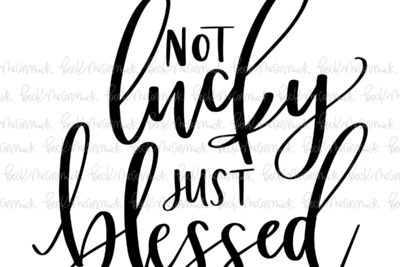 NOT
lucky
JUST
blessed